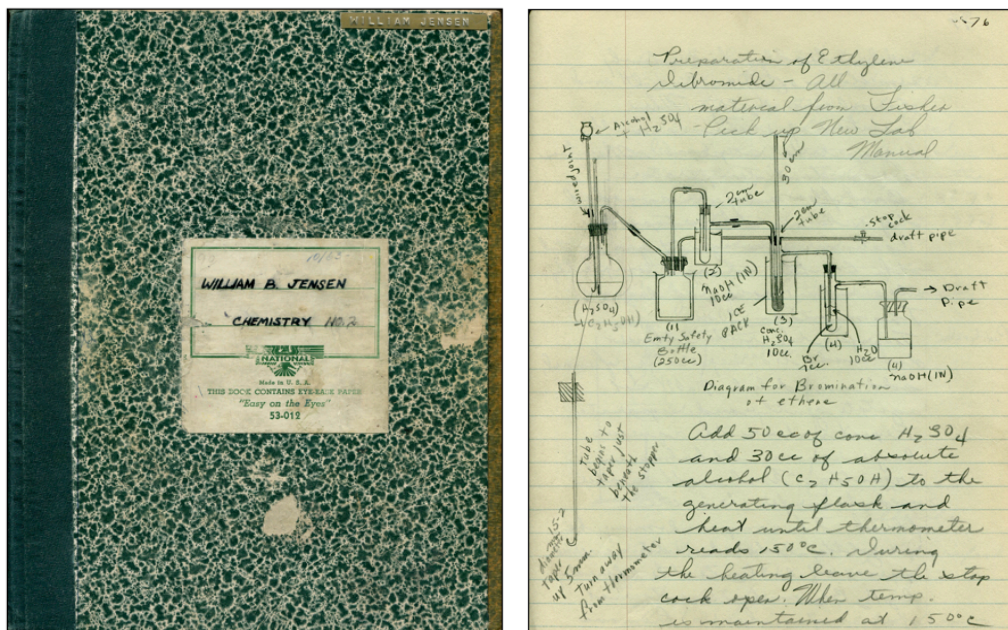 WILLIAM JENSEN
10/63
WILLIAM B. JENSEN
CHEMISTRY NO. 2
NATIONAL
Made in U. S. A.
THIS BOOK CONTAINS EYE-EASE PAPER
"Easy on the Eyes"
53-012
76
Preparation of Ethylene
Dibromide - All
material from Fisher
- Pick up New Lab
Manual
Alcohol
+ H2SO4
30 cm
2cm
tube
2cm
tube
stop
cock
draft pipe
(H2SO4)
C2H5OH)
(1)
Emty Safety
Bottle
(250cc)
(2)
NaOH (1N)
10cc
ICE
PACK
(3)
conc.
H2SO4
10cc.
(4)
Br
1cc.
H2O
10cc
→ Draft
Pipe
(4)
NaOH (1N)
Diagram for Bromination
of ethene
Tube
begin to
taper just
beneath
the stopper
diameter
taper
up 5mm.
Turn away
from thermometer
Add 50 cc of conc H2SO4
and 30cc of absolute
alcohol (C2H5OH) to the
generating flask and
heat until thermometer
reads 150°C. During
the heating leave the stop
cock open. When temp.
is maintained at 150°C